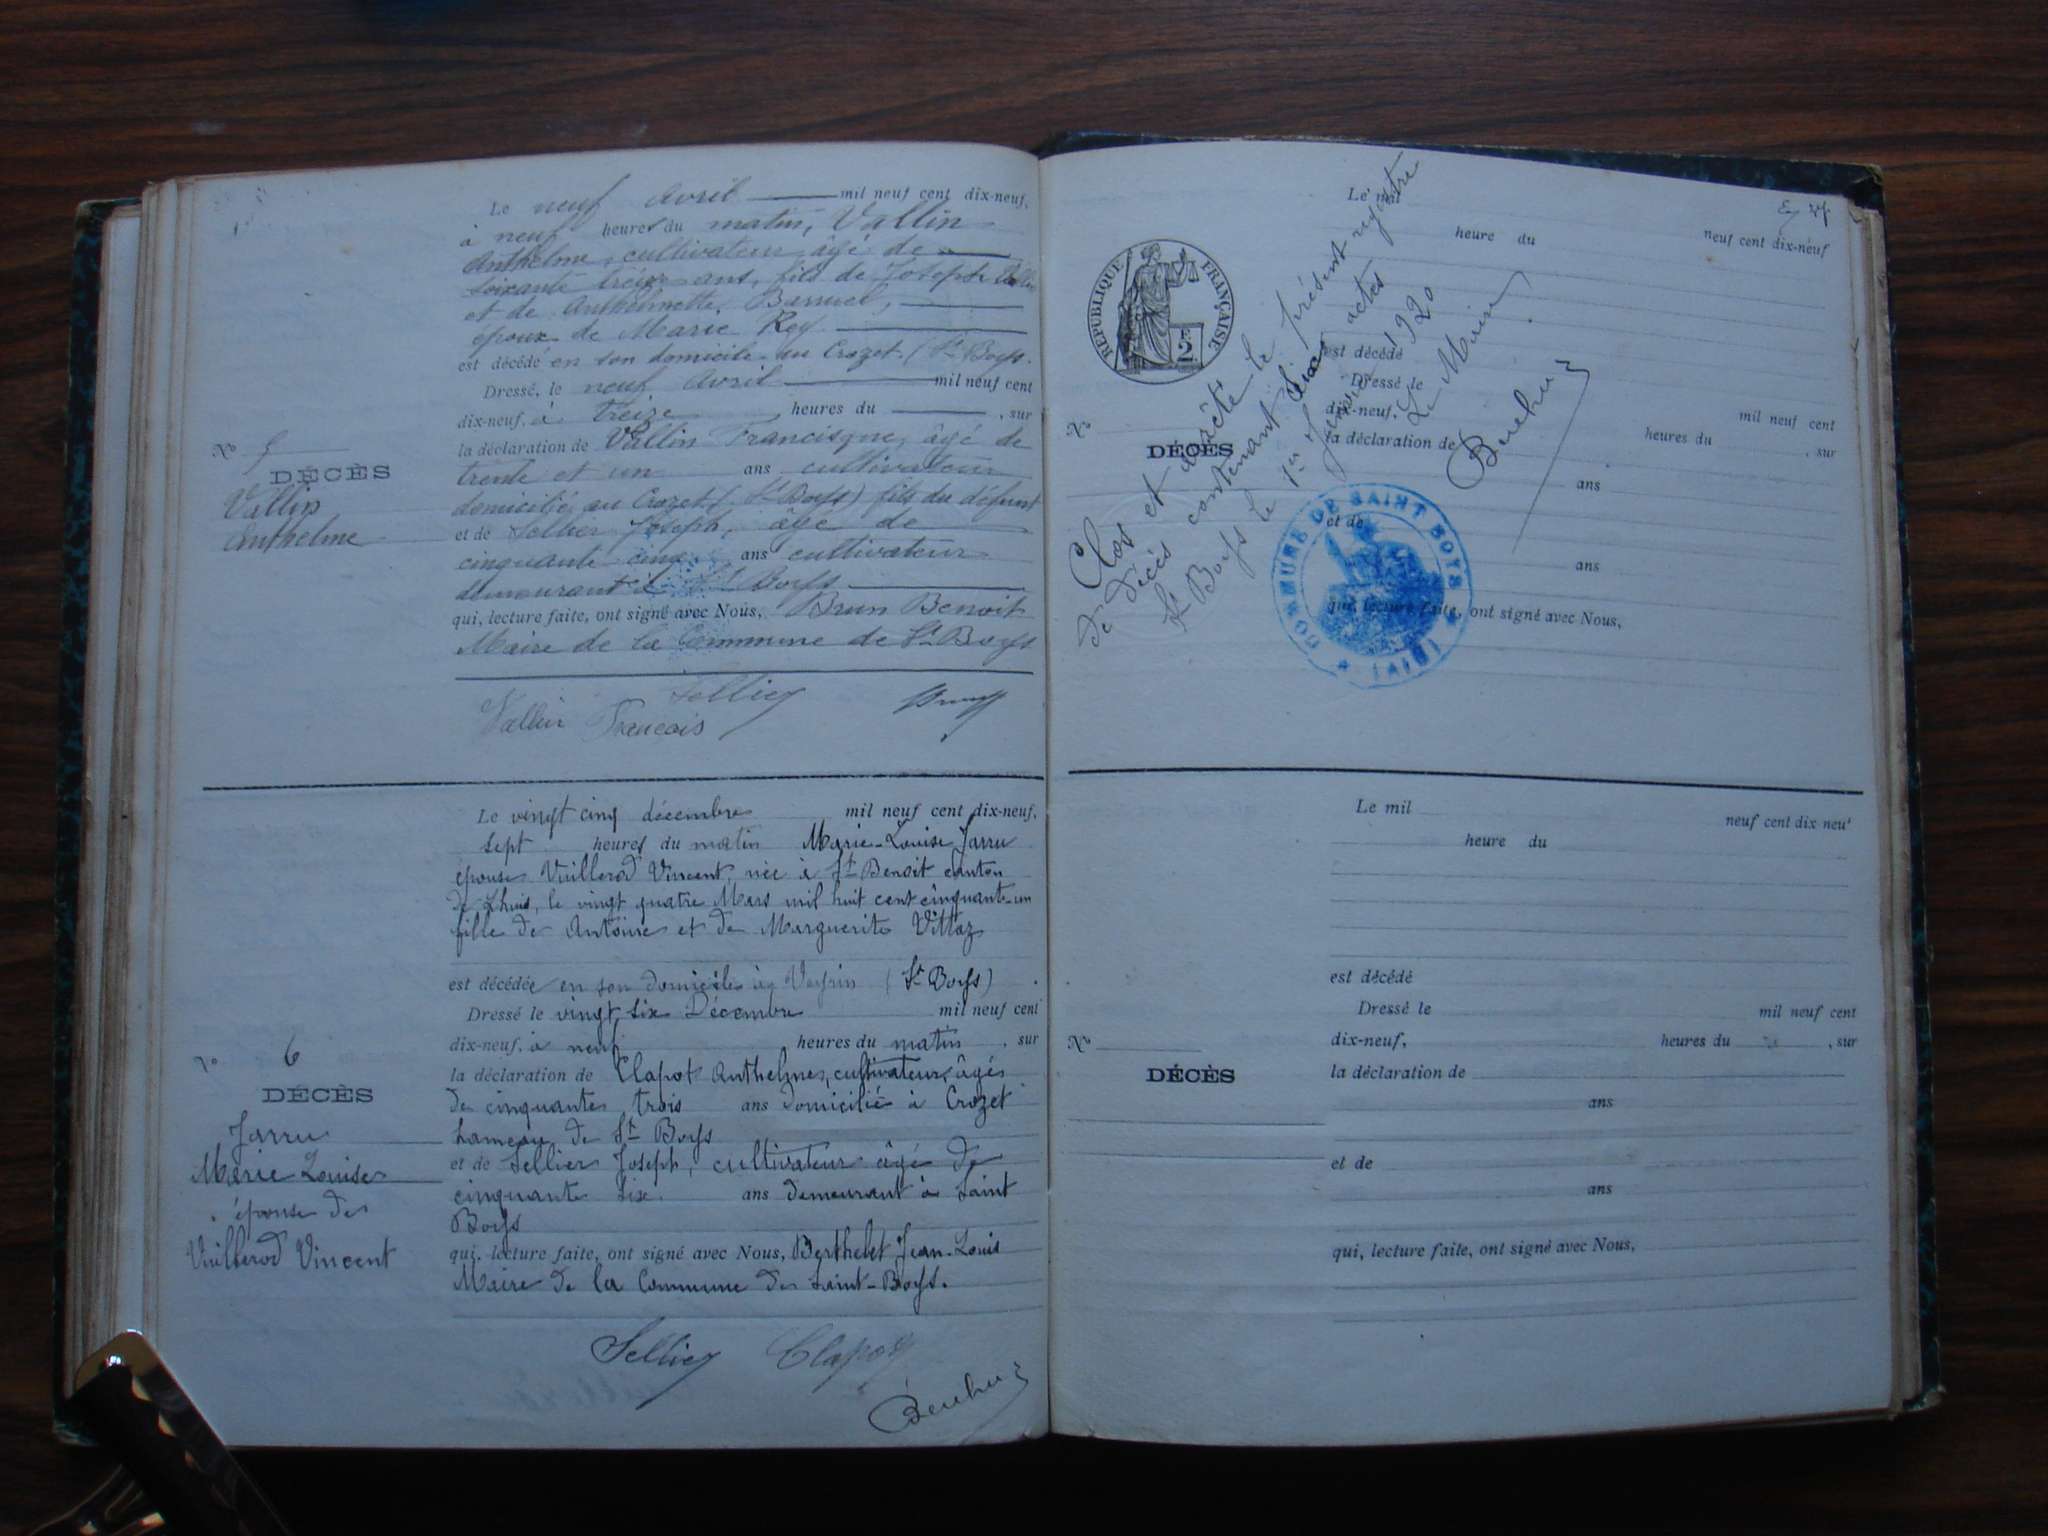 Le neuf Avril mil neuf cent dix-neuf,
à neuf heures du matin, Vallin
Anthelme, cultivateur âgé de
soixante treize ans, fils de Joseph Vallin
et de Anthelmette Barruel,
époux de Marie Rey
est décédé en son domicile au Crozet (St Boys.
Dressé, le neuf Avril mil neuf cent
dix-neuf, à treize heures du , sur
la déclaration de Vallin Francisque, âgé de
trente et un ans cultivateur
domicilié au Crozet (St Boys) fils du défunt
et de Sellier Joseph, âgé de
cinquante cinq ans cultivateur
demeurant à St Boys
qui, lecture faite, ont signé avec Nous, Brun Benoit
Maire de la Commune de St Boys
Sellier
Vallin Francois
No 5
DÉCÈS
Vallin
Anthelme
Le vingt cinq décembre mil neuf cent dix-neuf,
sept heures du matin Marie-Louise Jarru
épouse Vuillerod Vincent, née à St Benoit canton
de Lhuis, le vingt quatre Mars mil huit cent cinquante-un
fille de Antoine et de Marguerite Vittoz
est décédée en son domicile à Veyrin (St Boys)
Dressé le vingt six Décembre mil neuf cent
dix-neuf, à neuf heures du matin , sur
la déclaration de Clapot Anthelme, cultivateur, âgé
de cinquante trois ans domicilié à Crozet
hameau de St Boys
et de Sellier Joseph, cultivateur âgé de
cinquante six ans demeurant à Saint
Boys
qui, lecture faite, ont signé avec Nous, Berthelet Jean-Louis
Maire de la Commune de Saint-Boys.
Sellier Clapot
No 6
DÉCÈS
Jarru
Marie Louise
épouse de
Vuillerod Vincent
Le mil neuf cent dix-neuf
heure du
RÉPUBLIQUE FRANÇAISE
2
est décédé
Dressé le mil neuf cent
dix-neuf, heures du , sur
la déclaration de
ans
et de
ans
qui, lecture faite, ont signé avec Nous,
No
DÉCÈS
Clos et arrêté le présent registre
de décès contenant six actes
St Boys le 1er Janvier 1920
Le Maire
COMMUNE DE SAINT BOYS
(AIN)
Le mil neuf cent dix neuf
heure du
est décédé
Dressé le mil neuf cent
dix-neuf, heures du , sur
la déclaration de
ans
et de
ans
qui, lecture faite, ont signé avec Nous,
No
DÉCÈS